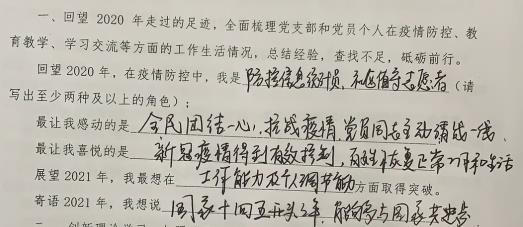 一、回望 2020 年走过的足迹，全面梳理党支部和党员个人在疫情防控、教
育教学、学习交流等方面的工作生活情况，总结经验，查找不足，砥砺前行。
回望 2020 年，在疫情防控中，我是 防控信息统计员、社区值守志愿者 （请
写出至少两种及以上的角色）；
最让我感动的是 全民团结一心，抗战疫情，党员同志主动请战一线
最让我喜悦的是 新冠疫情得到有效控制，百姓恢复正常工作和生活
展望 2021 年，我最想在 工作能力及个人调节能力 方面取得突破。
寄语 2021 年，我想说 国家十四五开头之年，与国家共